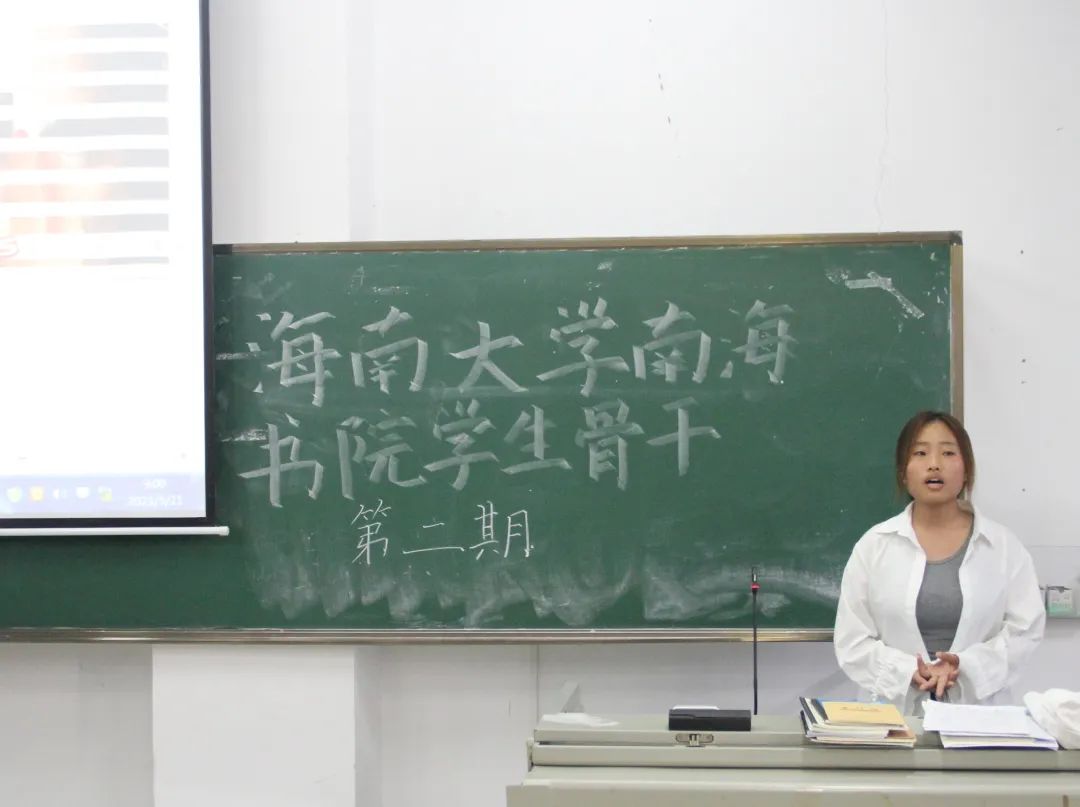 海南大学南海
书院学生骨干
第二期
9:00
2023/5/21